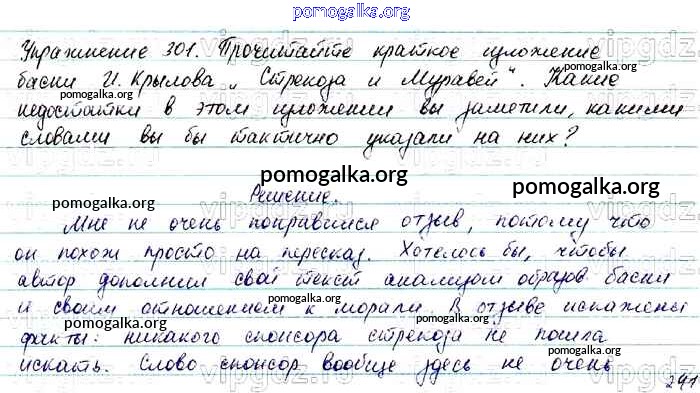 pomogalka.org
Упражнение 301. Прочитайте краткое изложение
басни И. Крылова „Стрекоза и Муравей“. Какие
недостатки в этом изложении вы заметили, какими
словами вы бы тактично указали на них?
pomogalka.org pomogalka.org
pomogalka.org Решение. pomogalka.org
Мне не очень понравился отзыв, потому что
он похож просто на пересказ. Хотелось бы, чтобы
pomogalka.org
автор дополнил свой текст анализом образов басни
и своим отношением к морали. В отзыве искажены
pomogalka.org pomogalka.org
факты: никакого спонсора стрекоза не пошла
pomogalka.org
искать. Слово спонсор вообще здесь не очень
291